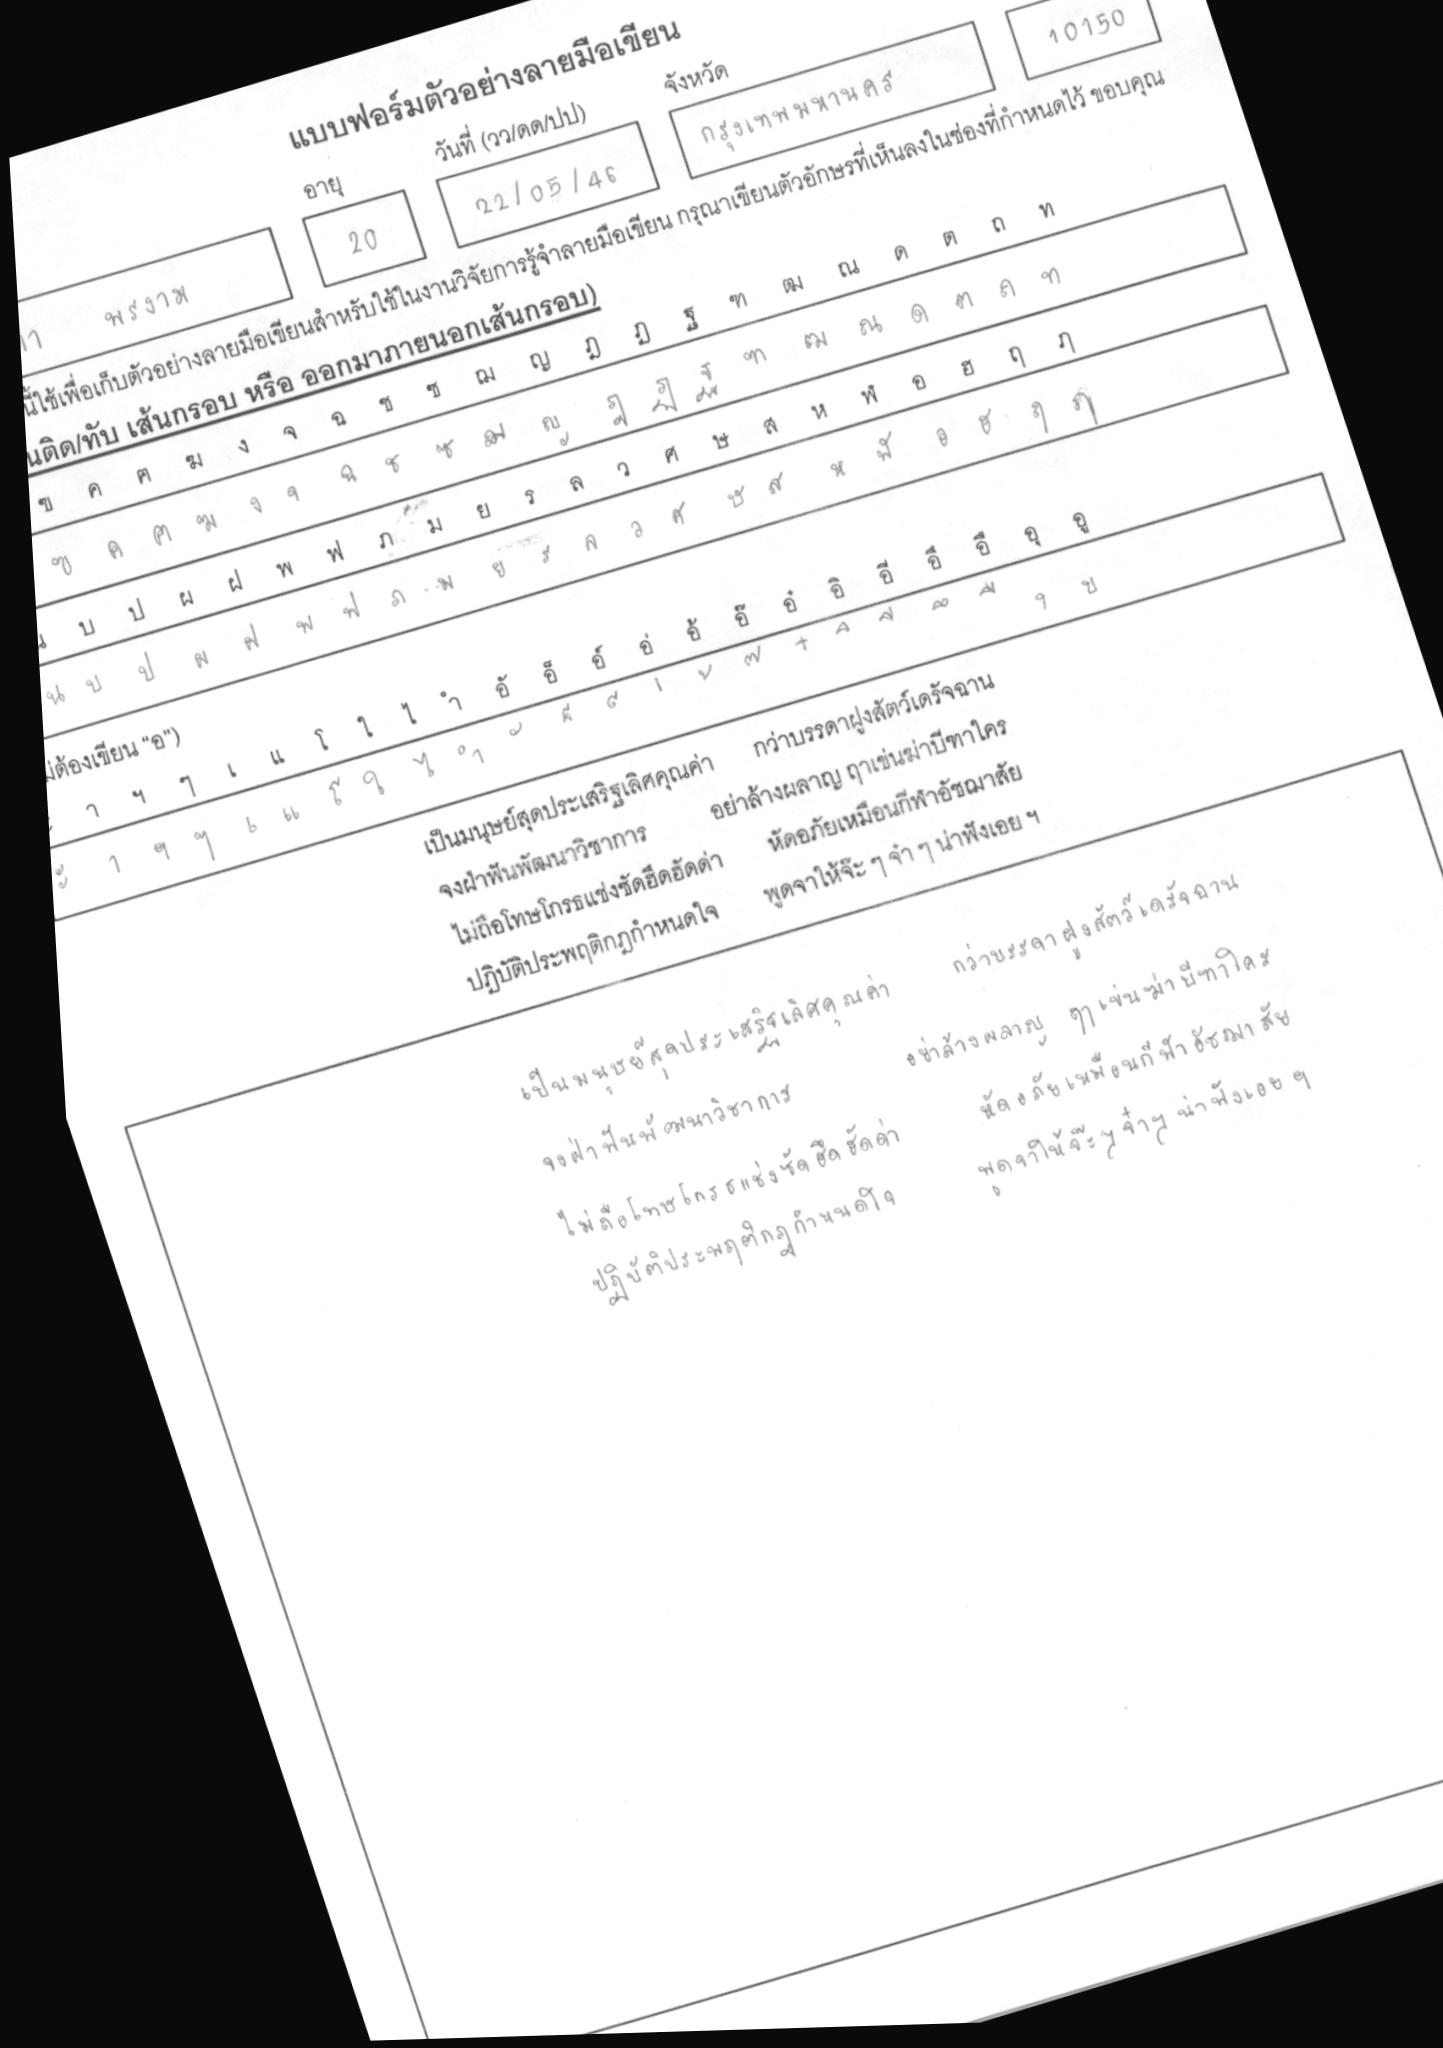 แบบฟอร์มตัวอย่างลายมือเขียน
อายุ วันที่ (วว/ดด/ปป) จังหวัด
พรงาม 20 22/05/46 กรุงเทพมหานคร 10150
นี้ใช้เพื่อเก็บตัวอย่างลายมือเขียนสำหรับใช้ในงานวิจัยการรู้จำลายมือเขียน กรุณาเขียนตัวอักษรที่เห็นลงในช่องที่กำหนดไว้ ขอบคุณ
นติด/ทับ เส้นกรอบ หรือ ออกมาภายนอกเส้นกรอบ)
ฃ ค ฅ ฆ ง จ ฉ ช ซ ฌ ญ ฎ ฏ ฐ ฑ ฒ ณ ด ต ถ ท
ฃ ค ฅ ฆ ง จ ฉ ช ซ ฌ ญ ฎ ฏ ฐ ฑ ฒ ณ ด ต ถ ท
น บ ป ผ ฝ พ ฟ ภ ม ย ร ล ว ศ ษ ส ห ฬ อ ฮ ฤ ฦ
น บ ป ผ ฝ พ ฟ ภ ม ย ร ล ว ศ ษ ส ห ฬ อ ฮ ฤ ฦ
ไม่ต้องเขียน “อ”)
ะ า ฯ ๆ เ แ โ ใ ไ ำ อั อ็ อ์ อ่ อ้ อ๊ อ๋ อิ อี อึ อื อุ อู
ะ า ฯ ๆ เ แ โ ใ ไ ำ ั ็ ์ ่ ้ ๊ ๋ ิ ี ึ ื ุ ู
เป็นมนุษย์สุดประเสริฐเลิศคุณค่า กว่าบรรดาฝูงสัตว์เดรัจฉาน
จงฝ่าฟันพัฒนาวิชาการ อย่าล้างผลาญ ฤาเข่นฆ่าบีฑาใคร
ไม่ถือโทษโกรธแช่งซัดฮึดฮัดด่า หัดอภัยเหมือนกีฬาอัชฌาสัย
ปฏิบัติประพฤติกฎกำหนดใจ พูดจาให้จ๊ะ ๆ จ๋า ๆ น่าฟังเอย ฯ
เป็นมนุษย์สุดประเสริฐเลิศคุณค่า กว่าบรรดาฝูงสัตว์เดรัจฉาน
จงฝ่าฟันพัฒนาวิชาการ อย่าล้างผลาญ ฤาเข่นฆ่าบีฑาใคร
ไม่ถือโทษโกรธแช่งซัดฮึดฮัดด่า หัดอภัยเหมือนกีฬาอัชฌาสัย
ปฏิบัติประพฤติกฎกำหนดใจ พูดจาให้จ๊ะๆ จ๋าๆ น่าฟังเอย ฯ